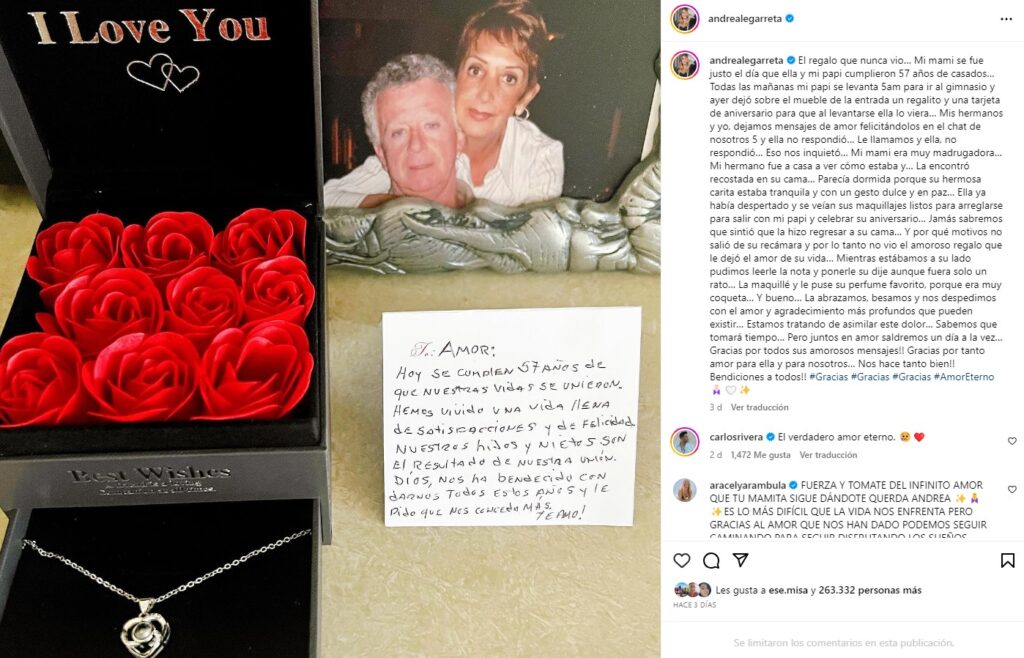 I Love You
Best Wishes
To: AMOR:
HOY SE CUMPLEN 57 AÑOS DE
QUE NUESTRAS VIDAS SE UNIERON.
HEMOS VIVIDO UNA VIDA LLENA
DE SATISFACCIONES Y DE FELICIDAD
NUESTROS HIJOS Y NIETOS SON
EL RESULTADO DE NUESTRA UNIÓN.
DÍOS, NOS HA BENDECIDO CON
DARNOS TODOS ESTOS AÑOS Y LE
PIDO QUE NOS CONCEDA MÁS.
TE AMO!
andrealegarreta
andrealegarreta El regalo que nunca vio... Mi mami se fue
justo el día que ella y mi papi cumplieron 57 años de casados...
Todas las mañanas mi papi se levanta 5am para ir al gimnasio y
ayer dejó sobre el mueble de la entrada un regalito y una tarjeta
de aniversario para que al levantarse ella lo viera... Mis hermanos
y yo, dejamos mensajes de amor felicitándolos en el chat de
nosotros 5 y ella no respondió... Le llamamos y ella, no
respondió... Eso nos inquietó... Mi mami era muy madrugadora...
Mi hermano fue a casa a ver cómo estaba y... La encontró
recostada en su cama... Parecía dormida porque su hermosa
carita estaba tranquila y con un gesto dulce y en paz... Ella ya
había despertado y se veían sus maquillajes listos para arreglarse
para salir con mi papi y celebrar su aniversario... Jamás sabremos
que sintió que la hizo regresar a su cama... Y por qué motivos no
salió de su recámara y por lo tanto no vio el amoroso regalo que
le dejó el amor de su vida... Mientras estábamos a su lado
pudimos leerle la nota y ponerle su dije aunque fuera solo un
rato... La maquillé y le puse su perfume favorito, porque era muy
coqueta... Y bueno... La abrazamos, besamos y nos despedimos
con el amor y agradecimiento más profundos que pueden
existir... Estamos tratando de asimilar este dolor... Sabemos que
tomará tiempo... Pero juntos en amor saldremos un día a la vez...
Gracias por todos sus amorosos mensajes!! Gracias por tanto
amor para ella y para nosotros... Nos hace tanto bien!!
Bendiciones a todos!! #Gracias #Gracias #Gracias #AmorEterno
🧘‍♀️🤍✨
3 d Ver traducción
carlosrivera El verdadero amor eterno. 🥹 ❤️
2 d 1,472 Me gusta Ver traducción
aracelyarambula FUERZA Y TOMATE DEL INFINITO AMOR
QUE TU MAMITA SIGUE DÁNDOTE QUERDA ANDREA ✨🧘‍♀️
✨ES LO MÁS DIFÍCIL QUE LA VIDA NOS ENFRENTA PERO
GRACIAS AL AMOR QUE NOS HAN DADO PODEMOS SEGUIR
CAMINANDO PARA SEGUIR DISFRUTANDO LOS SUEÑOS
Les gusta a ese.misa y 263.332 personas más
HACE 3 DÍAS
Se limitaron los comentarios en esta publicación.